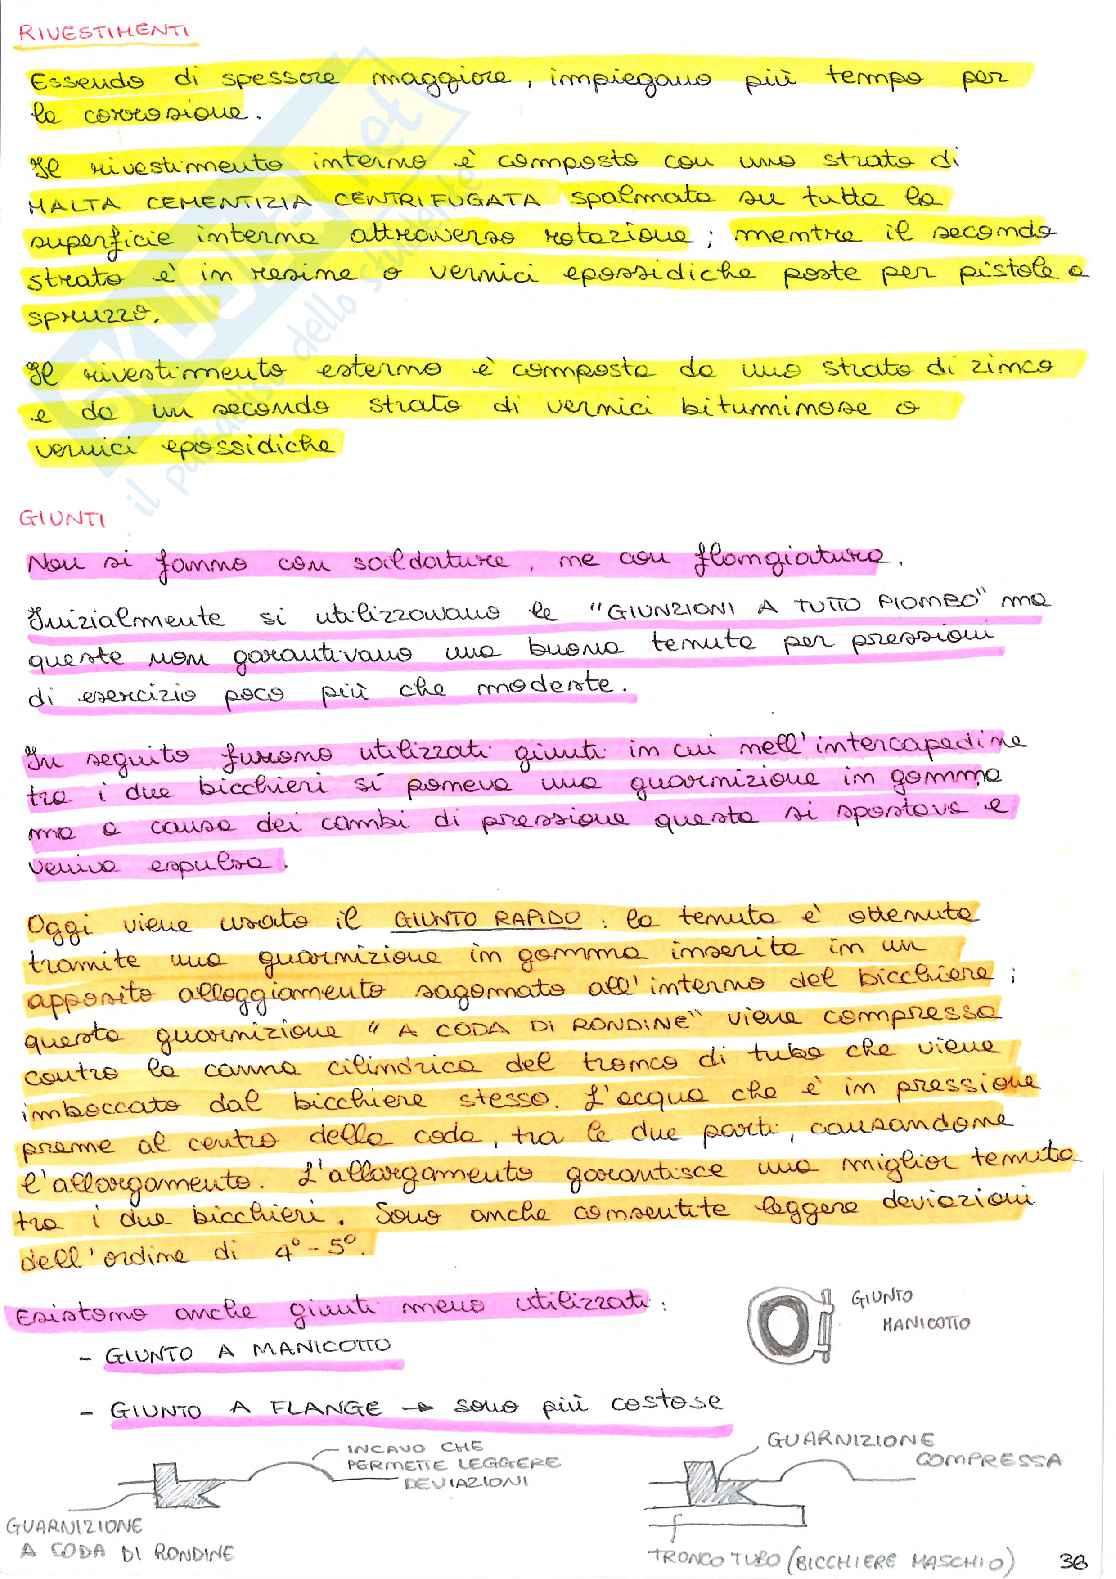 RIVESTIMENTI
Essendo di spessore maggiore, impiegano più tempo per
la corrosione.
Il rivestimento interno è composto con uno strato di
MALTA CEMENTIZIA CENTRIFUGATA spalmata su tutta la
superficie interna attraverso rotazione; mentre il secondo
strato è in resine o vernici epossidiche poste per pistole a
spruzzo.
Il rivestimento esterno è composta da uno strato di zinco
e da un secondo strato di vernici bituminose o
vernici epossidiche
GIUNTI
Non si fanno con saldature, ma con flangiatura.
Inizialmente si utilizzavano le "GIUNZIONI A TUTTO PIOMBO" ma
queste non garantivano una buona tenuta per pressioni
di esercizio poco più che modeste.
In seguito furono utilizzati giunti in cui nell'intercapedine
tra i due bicchieri si poneva una guarnizione in gomma
ma a causa dei cambi di pressione questa si spostava e
veniva espulsa.
Oggi viene usato il GIUNTO RAPIDO: la tenuta è ottenuta
tramite una guarnizione in gomma inserita in un
apposito alloggiamento sagomato all'interno del bicchiere;
questa guarnizione "A CODA DI RONDINE" viene compressa
contro la canna cilindrica del tronco di tubo che viene
imboccato dal bicchiere stesso. L'acqua che è in pressione
preme al centro della coda, tra le due parti, causandone
l'allargamento. L'allargamento garantisce una miglior tenuta
tra i due bicchieri. Sono anche consentite leggere deviazioni
dell'ordine di 4°-5°.
Esistono anche giunti meno utilizzati:
- GIUNTO A MANICOTTO
GIUNTO
MANICOTTO
- GIUNTO A FLANGE → sono più costose
INCAVO CHE
PERMETTE LEGGERE
DEVIAZIONI
GUARNIZIONE
COMPRESSA
GUARNIZIONE
A CODA DI RONDINE
TRONCO TUBO (BICCHIERE MASCHIO)
38
SKUOLA.net
il paradiso dello studente